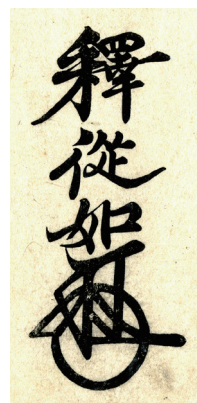 釋從如